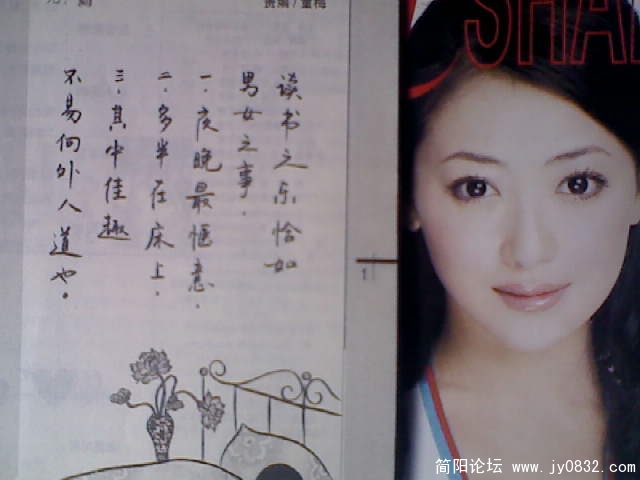 责编/董梅
读书之乐恰如
男女之事。
一.夜晚最惬意.
二.多半在床上.
三.其中佳趣
不易向外人道也。
1
SHA
简阳论坛 www.jy0832.com